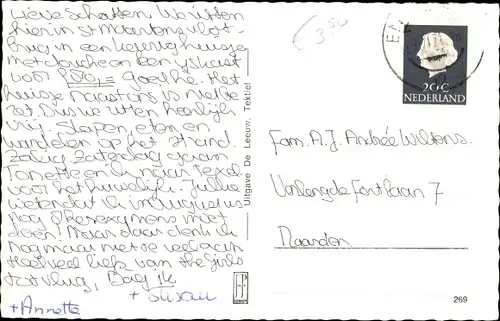 Lieve Schatten. We zitten
hier in St Maartensvlot-
brug in een huisje
met douche en een yskast
voor 250,= goed he. Het
huisje naast ons is niet be-
zet. Dus we zitten heerlijk
vrij. Slapen, eten en
wandelen op het strand.
Zalig. Zaterdag gaan
Tonette en ik naar Texel
voor het huwelijk. Jullie
weten dat ik in augustus
nog moet
doen! Maar daar denk ik
nog maar niet te veel aan
Heel veel liefs van the girls
Tot vlug,
+ Annette
+ Susan
Uitgave De Leeuw, Textiel
€ 3,50
20c
NEDERLAND
Fam. A.J. Andrée Wiltens
Verlengde Fortlaan 7
Naarden
269